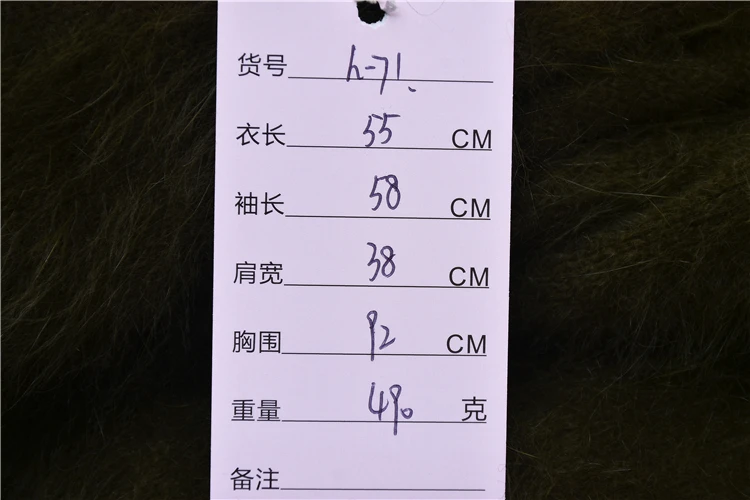 货号 h-71.
衣长 55 CM
袖长 58 CM
肩宽 38 CM
胸围 92 CM
重量 490 克
备注